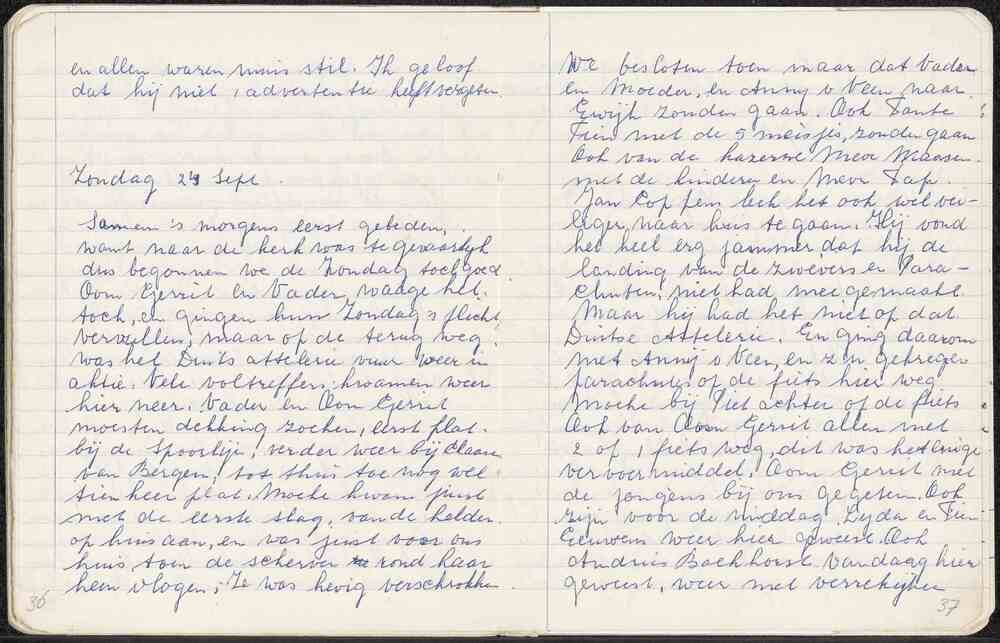 en allen waren muis stil. Ik geloof
dat hij niet 1 advertentie heeft vergeten.
Zondag 24 Sept.
Samen 's morgens eerst gebeden,
want naar de kerk was te gevaarlijk
dus begonnen we de Zondag toch goed.
Oom Gerrit en Vader, waage het
toch, en gingen hun Zondag's plicht
vervullen, maar op de terug weg
was het Duits attelerie vuur weer in
aktie. Vele voltreffers kwamen weer
hier neer. Vader en Oom Gerrit
moesten dekking zoeken, eerst plat
bij de Spoorlije, verder weer bij Claan
van Bergen, tot thuis toe nog wel
tien keer plat. Moeke kwam juist
met de eerste slag, van de kelder
op huis aan, en was juist voor ons
huis, toen de scherven rond haar
heen vlogen, Ze was hevig verschrokken
36
We besloten toen maar dat Vader
en Moeder, en Anny v Veen naar
Ewijk zouden gaan. Ook Tante
Tien met de 5 meisjes, zouden gaan
Ook van de kazerne Mevr Maasen
met de kinderen en Mevr Tap.
Jan Coppens leek het ook wel vei-
liger, naar huis te gaan. Hij vond
het heel erg jammer dat hij de
landing van de zwevers en Para-
chuten, niet had meegemaakt.
Maar hij had het niet op dat
Duitse Attelerie. En ging daarom
met Annij v Veen, en z'n gekregen
parachutes op de fiets hier weg
Moeke bij Piet achter op de fiets
Ook van Oom Gerrit allen met
2 op 1 fiets weg, dit was het enige
vervoermiddel. Oom Gerrit met
de jongens bij ons gegeten. Ook
zijn voor de middag Lyda en Tien
Eeuwens weer hier geweest. Ook
Andries Backhorst vandaag hier
geweest, weer met verrekijker
37